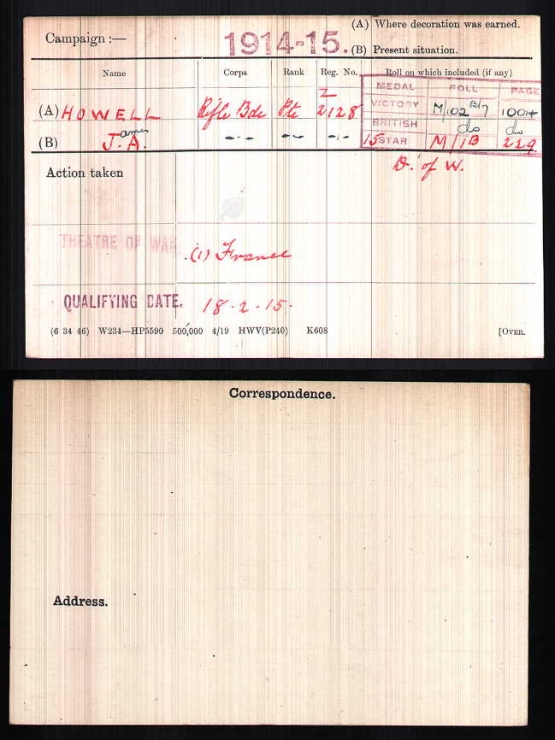 Campaign :— 1914-15. (A) Where decoration was earned.
(B) Present situation.
Name Corps Rank Reg. No. Roll on which included (if any)
MEDAL ROLL PAGE
(A) HOWELL Rifle Bde Pte Z 2128 VICTORY M/102 B17 1004
BRITISH do do
(B) J. ames A. -"- -"- 15 STAR M/11B 229
Action taken D. of W.
THEATRE OF WAR. (1) France
QUALIFYING DATE. 18-2-15.
(6 34 46) W234—HP5590 500,000 4/19 HWV(P240) K608 [OVER.
Correspondence.
Address.